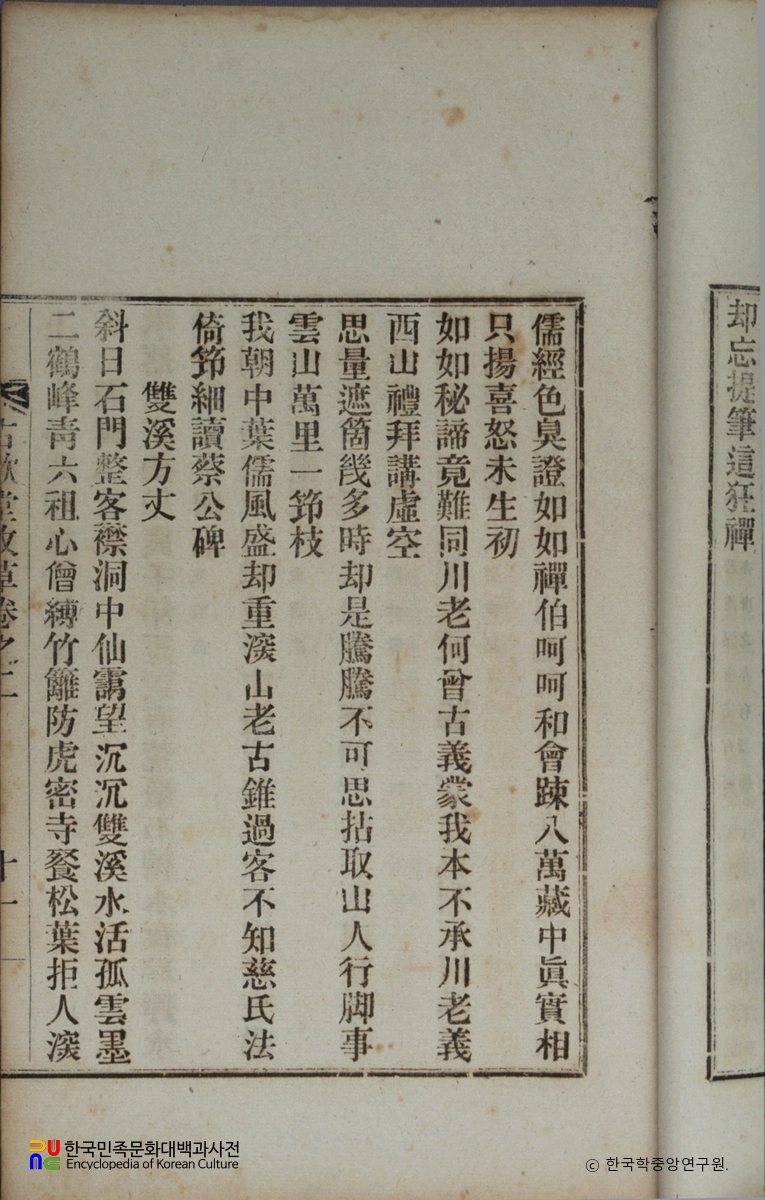 却忘提筆這狂禪
儒經色臭證如如禪伯呵呵和會踈八萬藏中眞實相
只揚喜怒未生初
如如秘諦竟難同川老何曾古義蒙我本不承川老義
西山禮拜講虛空
思量遮箇幾多時却是騰騰不可思拈取山人行脚事
雲山萬里一笻枝
我朝中葉儒風盛却重深山老古錐過客不知慈氏法
倚笻細讀蔡公碑
雙溪方丈
斜日石門整客襟洞中仙靄望沉沉雙溪水活孤雲墨
二鶴峰靑六祖心僧縳竹籬防虎密寺餐松葉拒人深
古歡堂收草卷之二
十一
한국민족문화대백과사전
Encyclopedia of Korean Culture
© 한국학중앙연구원.